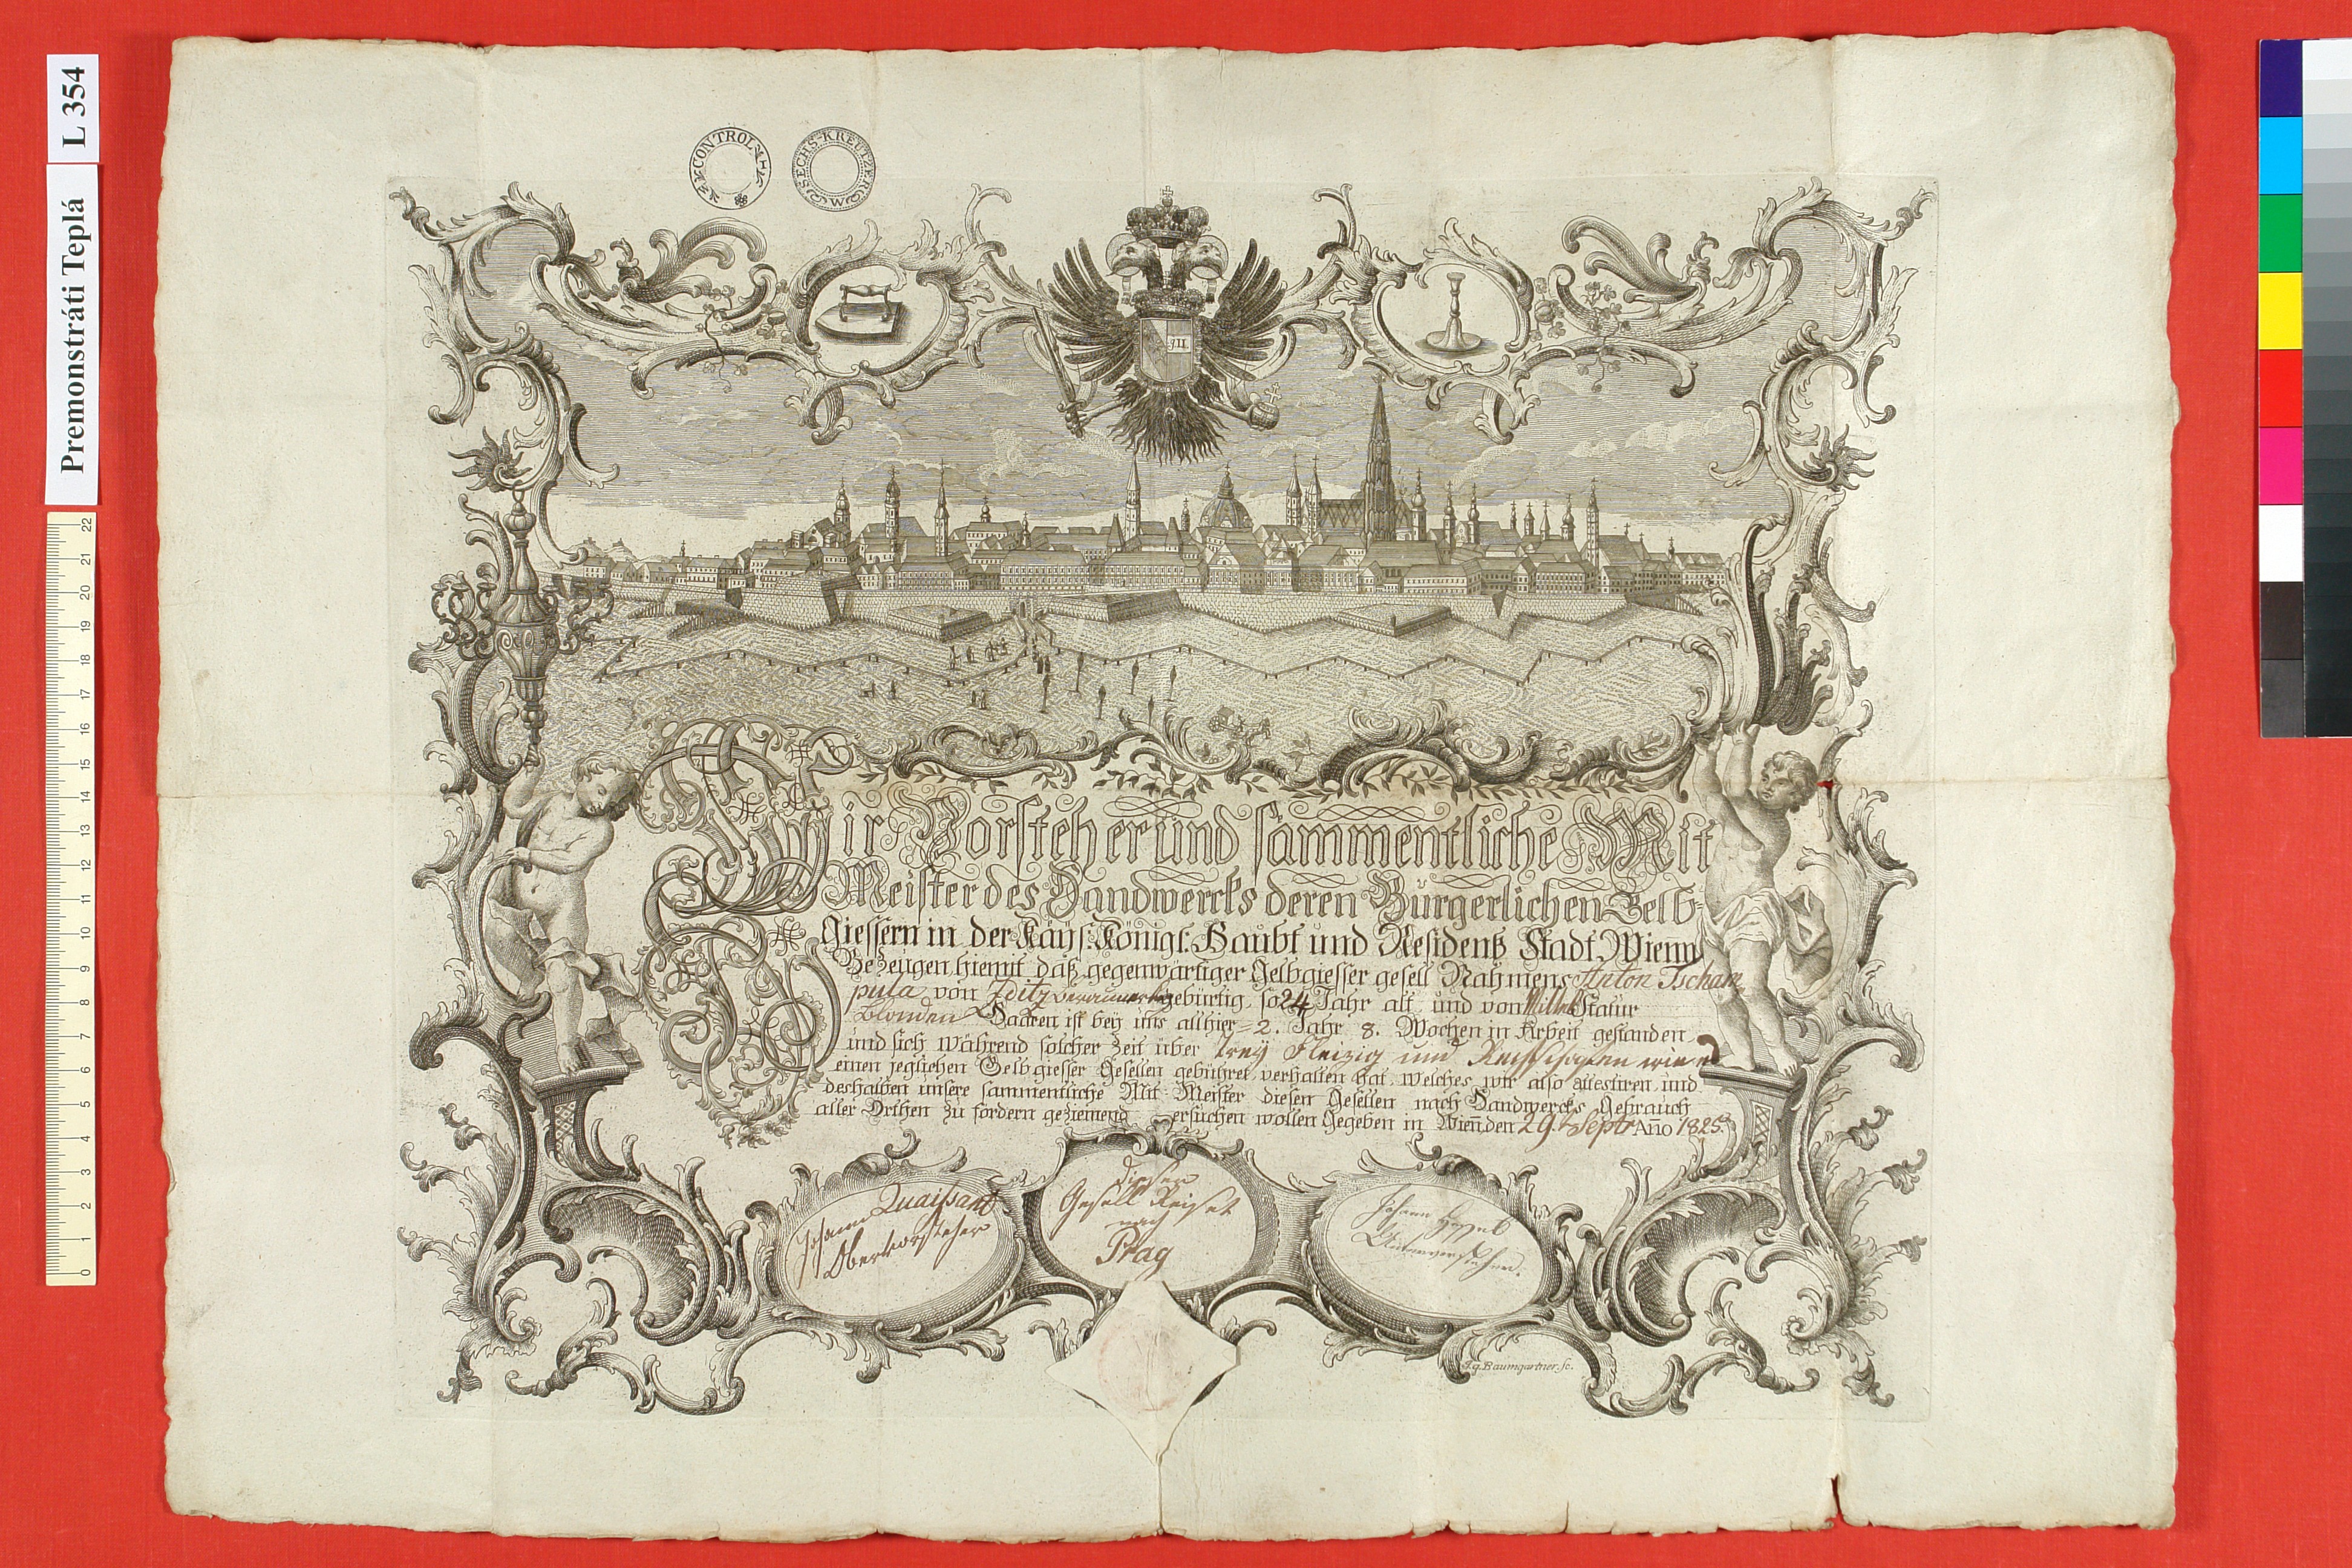 L 354
Premonstráti Teplá
22
21
20
19
18
17
16
15
14
13
12
11
10
9
8
7
6
5
4
3
2
1
0
CONTROL
SECHS KREUTZER
W
JII
Wir Vorsteher und sämmentliche Mit
Meister des Handwercks deren Bürgerlichen Gelb-
Giessern in der Kayſ: Königl: Haubt und Residentz Stadt Wienn
Bezeugen hiemit daß gegenwärtiger Gelbgiesser gesell Nahmens Anton Tscham
pula von Zditz geburtig, so 24 Jahr alt, und von Mittel Statur
blonden Haaren ist bey uns allhier 2. Jahr 8. Wochen in Arbeit gestanden
und sich während solcher Zeit über trey Fleizig und wie es
einen jeglichen Gelbgiesser Gesellen gebühret verhalten hat. welches wir also attestiren, und
deshalben unsere sammentliche Mit Meister diesen Gesellen nach Handwercks Gebrauch
aller Orthen zu fördern geziemend ersuchen wollen Gegeben in Wien̄ den 29. Septr Año 1825
Johann Quaissant
Obervorsteher
Dieser
Gesell Reiset
nach
Prag
Johann
Untervorsteher.
J.g. Baumgartner. sc.